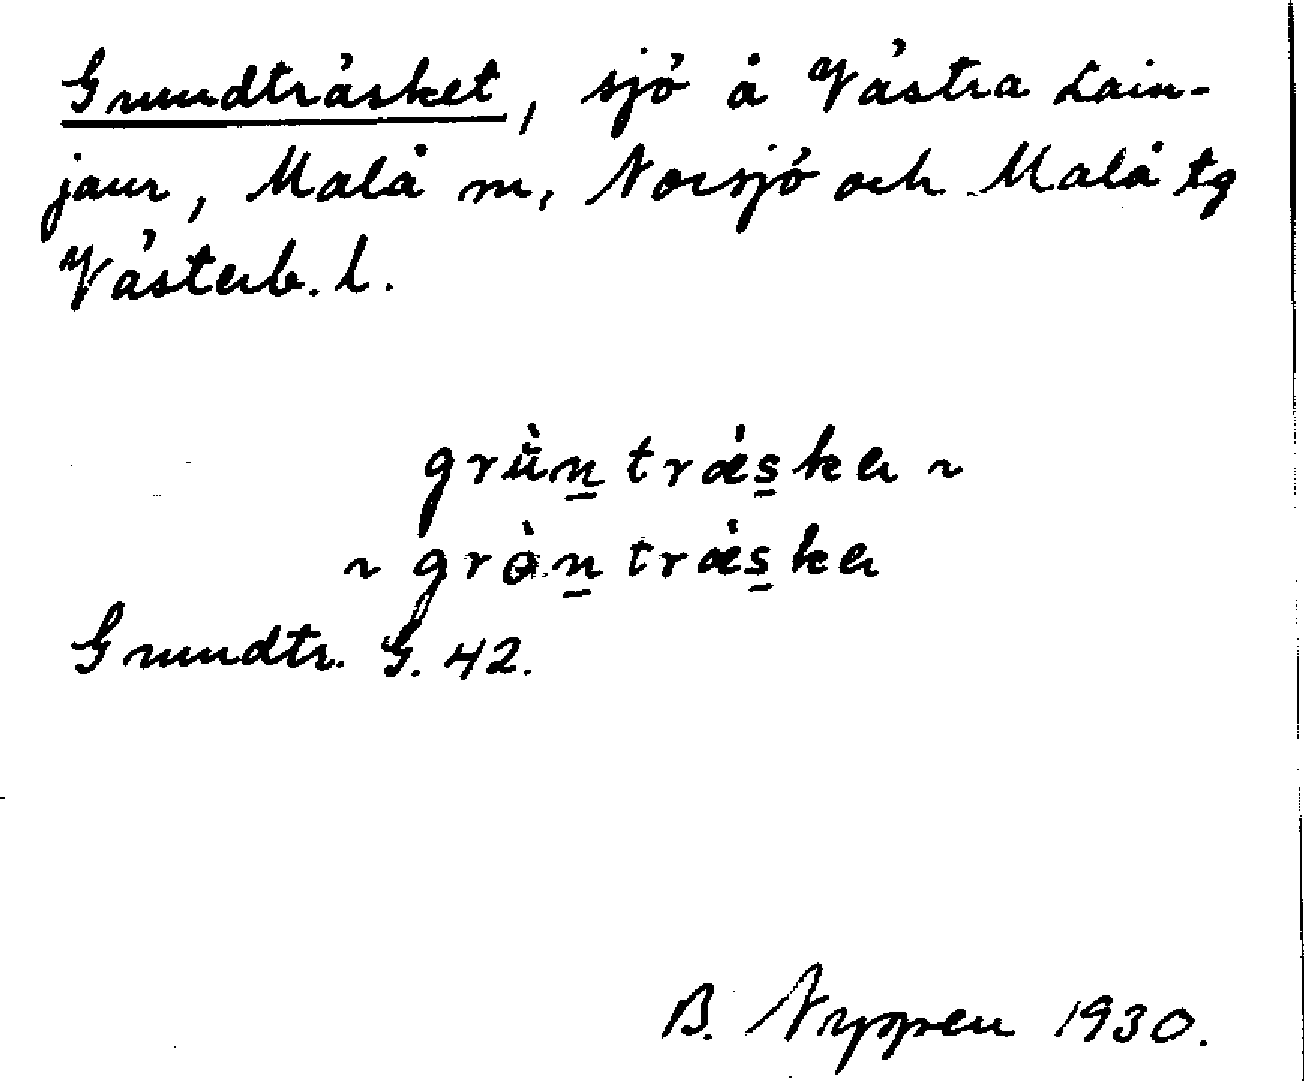 Grundträsket, sjö å Västra Lain-
jaur, Malå sn, Norsjö och Malå tg
Västerb. l.
grùn̲ træ̀s̲ka ~
~ grò̀n̲ træ̀s̲ka
Grundtr. G. 42.
B. Nyggren 1930.